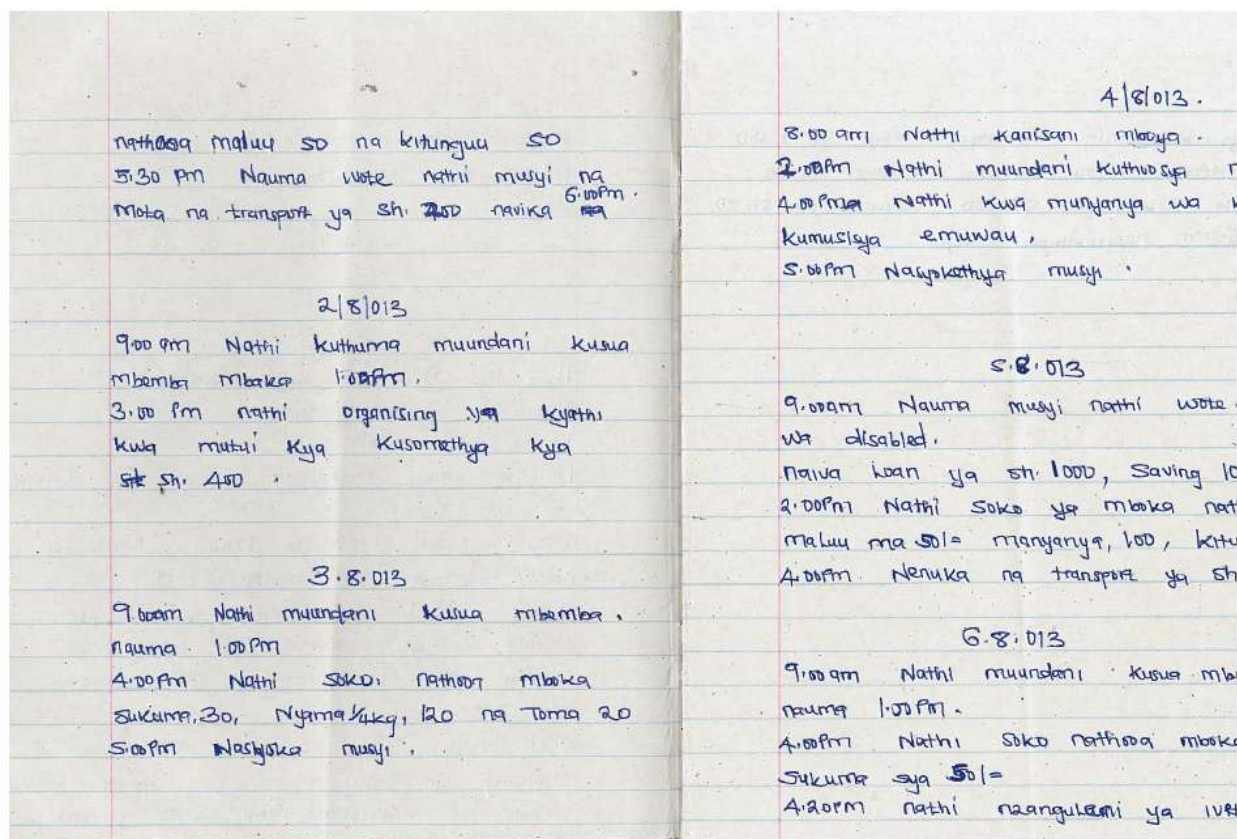 nathooa maluu 50 na kitunguu 50
5.30 pm Nauma wote nathi musyi na
mota na transport ya sh. 200 navika 6.00pm.
2/8/013
9.00 am Nathi kuthuma muundani kusua
mbemba mbaka 1.00pm.
3.00 pm nathi organising ya kyathi
kwa mutui kya kusomethya kya
sh. 400
3.8.013
9.00am Nathi muundani kusua mbemba.
nauma 1.00pm
4.00pm Nathi soko, nathooa mboka
sukuma, 30, Nyama 1/4kg, 120 na Toma 20
5.00pm Nasyoka musyi.
4/8/013.
8.00 am Nathi Kanisani mboya.
2.00pm Nathi muundani kuthuosya
4.00pm Nathi kwa munyanya wa
kumusisya emuwau.
5.00pm Nasyokethya musyi.
5.8.013
9.00am Nauma musyi nathi wote
wa disabled.
naiva Loan ya sh. 1000, Saving
2.00pm Nathi soko ya mboka
maluu ma 50/= manyanya, 100,
4.00pm Nenuka na transport ya sh
6.8.013
9.00 am Nathi muundani kusua
nauma 1.00pm.
4.00pm Nathi soko nathooa mboka
sukuma sya 50/=
4.20pm nathi nzangulani ya